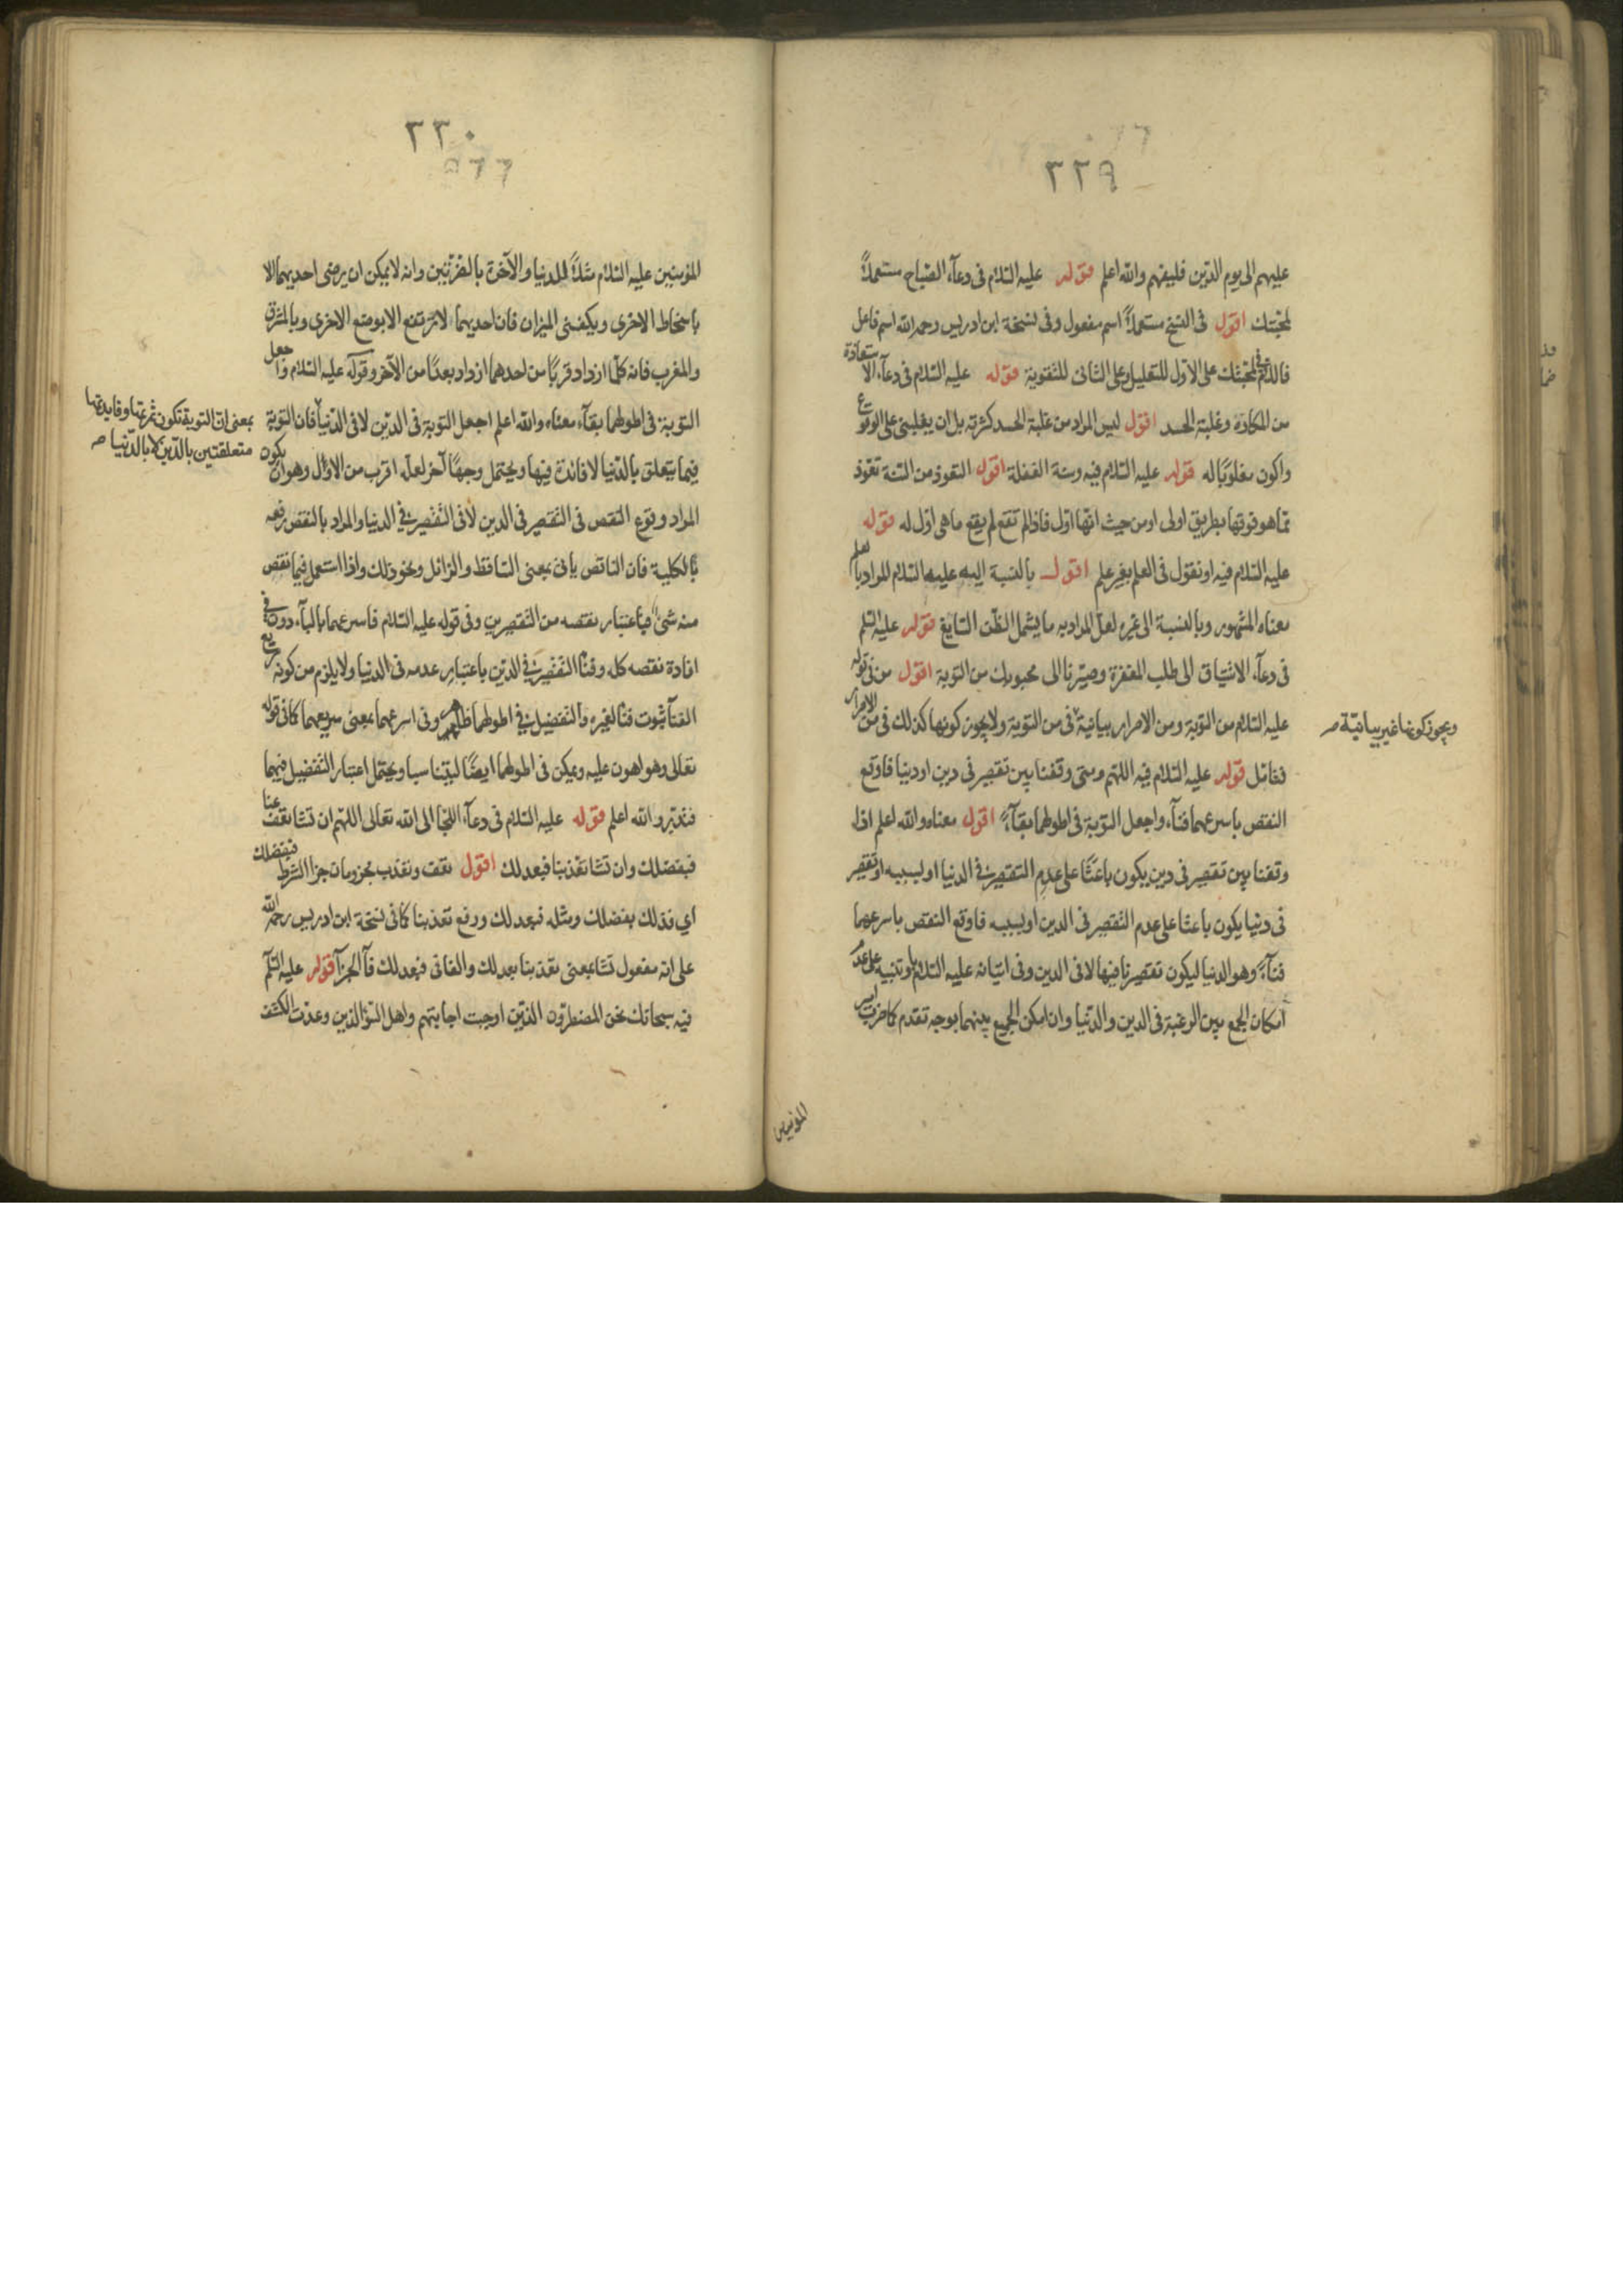 ٣٢٩
عليهم الى يوم الدين فليفهم والله اعلم قوله عليه السلام فى دعآء الصباح مستعملاً
لمحبتك اقول فى النسخ مستعملاً اسم مفعول وفى نسخة ابن ادريس رحمه الله اسم فاعل
فاللام فى لمحبتك على الاول للتعليل وعلى الثانى للتقوية قوله عليه السلام فى دعآء الاستعاذة
من المكاره وغلبة الحسد اقول ليس المراد من غلبة الحسد كثرته بل ان يغلبنى على الوقوع
واكون مغلوبًا له قوله عليه السلام فيه وسنة الغفلة اقول التعوذ من السنة تعوّذ
مما هو فوقها بطريق اولى او من حيث انها اول فاذا لم تقع لم يقع ما هى اول له قوله
عليه السلام فيه او نقول فى العلم بغير علم اقول بالنسبة اليه عليه السلام المراد بالعلم
معناه المشهور وبالنسبة الى غيره لعل المراد به ما يشمل الظن السايغ قوله عليه السلم
فى دعآء الاشتياق الى طلب المغفرة وصيّرنا الى محبوبك من التوبة اقول من فى قوله
عليه السلام من التوبة ومن الاصرار بيانية فى من التوبة ولا يجوز كونها كذلك فى من الاصرار
ويجوز كونها غير بيانيّة صـ
فتامّل قوله عليه السلام فيه اللهم ومتى وقفنا بين نقصين فى دين او دنيا فاوقع
النقص باسرعهما فنآء واجعل التوبة فى اطولهما بقآءً اقول معناه والله اعلم اذا
وقفنا بين تقصير فى دين يكون باعثًا على عدم التقصير فى الدنيا او لسببه او تقصير
فى دنيا يكون باعثا على عدم التقصير فى الدين او لسببه فاوقع النقص باسرعهما
فنآءً وهو الدنيا ليكون تقصيرنا فيها لا فى الدين وفى اتيانه عليه السلام باو تنبيه على عدم
امكان الجمع بين الرغبة فى الدين والدنيا وان امكن الجمع بينهما بوجه تقدم كما ضرب امير
المؤمنين
٣٣٠
المؤمنين عليه السلام مثلاً للدنيا والآخرة بالضرّتين وانه لا يمكن ان يرضى احديهما الا
باسخاط الاخرى وبكفتى الميزان فان احديهما لا ترتفع الا بوضع الاخرى وبالمشرق
والمغرب فانه كلما ازداد قربًا من احدهما ازداد بعدًا من الآخر وقوله عليه السلام واجعل
التوبة فى اطولهما بقآء معناه والله اعلم اجعل التوبة فى الدين لا فى الدنيا فان التوبة
بمعنى ان التوبة تكون ثمرتها وفايدتها
متعلقتين بالدّين لا بالدّنيا صـ
فيما يتعلق بالدنيا لا فائدة فيها ويحتمل وجهًا آخر لعله اقرب من الاول وهو ان يكون
المراد وقوع النقص فى التقصير فى الدين لا فى التقصير فى الدنيا والمراد بالنقص رفعه
بالكلية فان الناقص يأتى بمعنى الساقط والزائل ونحو ذلك واذا استعمل فيما نقص
منه شئ فباعتبار نقصه من التقصيرين وفى قوله عليه السلام فاسرعهما بالبآء دون فى
افادة نقصه كله وفنآ التقصير فى الدين باعتبار عدمه فى الدنيا ولا يلزم من كونه سريع
الفنآ ثبوت فنآ لغيره والتفضيل فى اطولهما ظاهر وفى اسرعهما بمعنى سريعهما كما فى قوله
تعالى وهو اهون عليه ويمكن فى اطولهما ايضًا ليتناسبا ويحتمل اعتبار التفضيل فيهما
فتدبر والله اعلم قوله عليه السلام فى دعآء اللجأ الى الله تعالى اللهم ان تشا تعف عنا
فبفضلك وان تشا تعذبنا فبعدلك اقول تعف وتعذب مجزومان جزا الشرط فبفضلك
اى فذلك بفضلك ومثله فبعدلك ورفع تعذبنا كما فى نسخة ابن ادريس رحمه الله
على انه مفعول تشا بمعنى تعذبنا بعدلك والفا فى فبعدلك فآ الجزآ قوله عليه السلم
فيه سبحانك نحن المضطرون الذين اوجبت اجابتهم واهل السؤ الذين وعدت الكشف